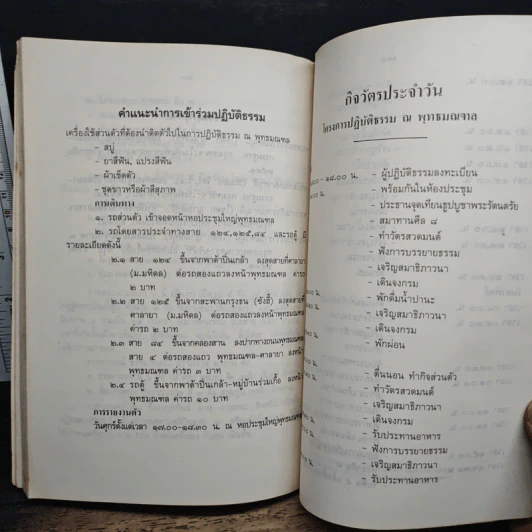 คำแนะนำการเข้าร่วมปฏิบัติธรรม
เครื่องใช้ส่วนตัวที่ต้องนำติดตัวไปในการปฏิบัติธรรม ณ พุทธมณฑล
- สบู่
- ยาสีฟัน, แปรงสีฟัน
- ผ้าเช็ดตัว
- ชุดขาวหรือผ้าสีสุภาพ
การเดินทาง
๑. รถส่วนตัว เข้าจอดหน้าหอประชุมใหญ่พุทธมณฑล
๒. รถโดยสารประจำทางสาย ๑๒๔,๑๒๕,๘๔ และรถตู้ มี
รายละเอียดดังนี้
๒.๑ สาย ๑๒๔ ขึ้นจากพาต้าปิ่นเกล้า ลงสุดสายที่ศาลายา
(ม.มหิดล) ต่อรถสองแถวลงหน้าพุทธมณฑล ค่ารถ
๒ บาท
๒.๒ สาย ๑๒๕ ขึ้นจากสะพานกรุงธน (ซังฮี้) ลงสุดสายที่
ศาลายา (ม.มหิดล) ต่อรถสองแถวลงหน้าพุทธมณฑล
ค่ารถ ๒ บาท
๒.๓ สาย ๘๔ ขึ้นจากคลองสาน ลงปากทางถนนพุทธมณฑล
สาย ๔ ต่อรถสองแถว พุทธมณฑล-ศาลายา ลงหน้า
พุทธมณฑล ค่ารถ ๓ บาท
๒.๔ รถตู้ ขึ้นจากพาต้าปิ่นเกล้า-หมู่บ้านร่วมเกื้อ ลงหน้า
พุทธมณฑล ค่ารถ ๑๐ บาท
การรายงานตัว
วันศุกร์ตั้งแต่เวลา ๑๗.๐๐-๑๘.๓๐ น. ณ หอประชุมใหญ่พุทธมณฑล
กิจวัตรประจำวัน
โครงการปฏิบัติธรรม ณ พุทธมณฑล
-๑๘.๐๐ น. - ผู้ปฏิบัติธรรมลงทะเบียน
- พร้อมกันในห้องประชุม
- ประธานจุดเทียนธูปบูชาพระรัตนตรัย
- สมาทานศีล ๘
- ทำวัตรสวดมนต์
- ฟังการบรรยายธรรม
- เจริญสมาธิภาวนา
- เดินจงกรม
- พักดื่มน้ำปานะ
- เจริญสมาธิภาวนา
- เดินจงกรม
- พักผ่อน
- ตื่นนอน ทำกิจส่วนตัว
- ทำวัตรสวดมนต์
- เจริญสมาธิภาวนา
- เดินจงกรม
- รับประทานอาหาร
- ฟังการบรรยายธรรม
- เจริญสมาธิภาวนา
- รับประทานอาหาร